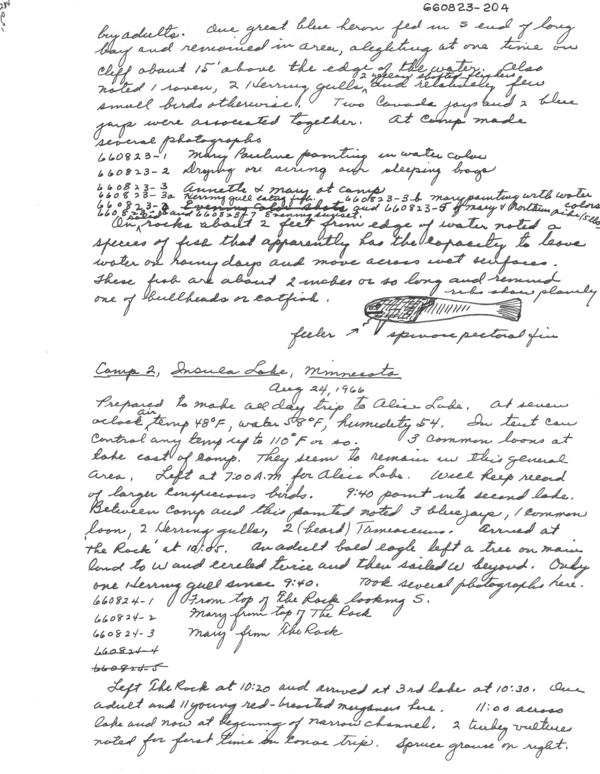 660823-204
by adults. One great blue heron fed in S end of long
bay and remained in area, alighting at one time on
cliff about 15' above the edge of the water. Also
noted 1 raven, 2 Herring gulls, 2 yellow shafted flickers and relatively few
small birds otherwise. Two Canada jays and 2 blue
jays were associated together. At Camp made
several photographs
660823-1 Mary Pauline painting in water color
660823-2 Drying or airing our sleeping bags
660823-3 Annette & Mary at camp
660823-3a Herring gull eating fish. 660823-3b Mary painting with water colors
660823-4 Evening color shots and 660823-5 of Mary & Northern pike
660823-6 and 660823-7 Evening sunset.
On rocks about 2 feet from edge of water noted a
species of fish that apparently has the capacity to leave
water on rainy days and move across wet surfaces.
These fish are about 2 inches or so long and remind
one of bullheads or catfish.
ribs show plainly
feeler
spinose pectoral fin
Camp 2, Insula Lake, Minnesota
Aug 24, 1966
Prepared to make all day trip to Alice Lake. At seven
oclock, air temp 48°F, water 58°F, humidity 54. In tent can
control any temp up to 110°F or so. 3 common loons at
lake east of camp. They seem to remain in this general
area. Left at 7:00 A.M. for Alice Lake. Will keep record
of larger conspicuous birds. 9:40 point into second lake.
Between camp and this pointed noted 3 blue jays, 1 common
loon, 2 Herring gulls, 2 (heard) Tamiasciurus. Arrived at
'the Rock' at 10:05. An adult bald eagle left a tree on main
land to W and circled twice and then sailed W beyond. Only
one Herring gull since 9:40. Took several photographs here.
660824-1 From top of The Rock looking S.
660824-2 Mary from top of The Rock
660824-3 Mary from The Rock
660824-4
660824-5
Left The Rock at 10:20 and arrived at 3rd lake at 10:30. One
adult and 11 young red-breasted mergansers here. 11:00 across
lake and now at beginning of narrow channel. 2 turkey vultures
noted for first time on canoe trip. Spruce grouse on right.